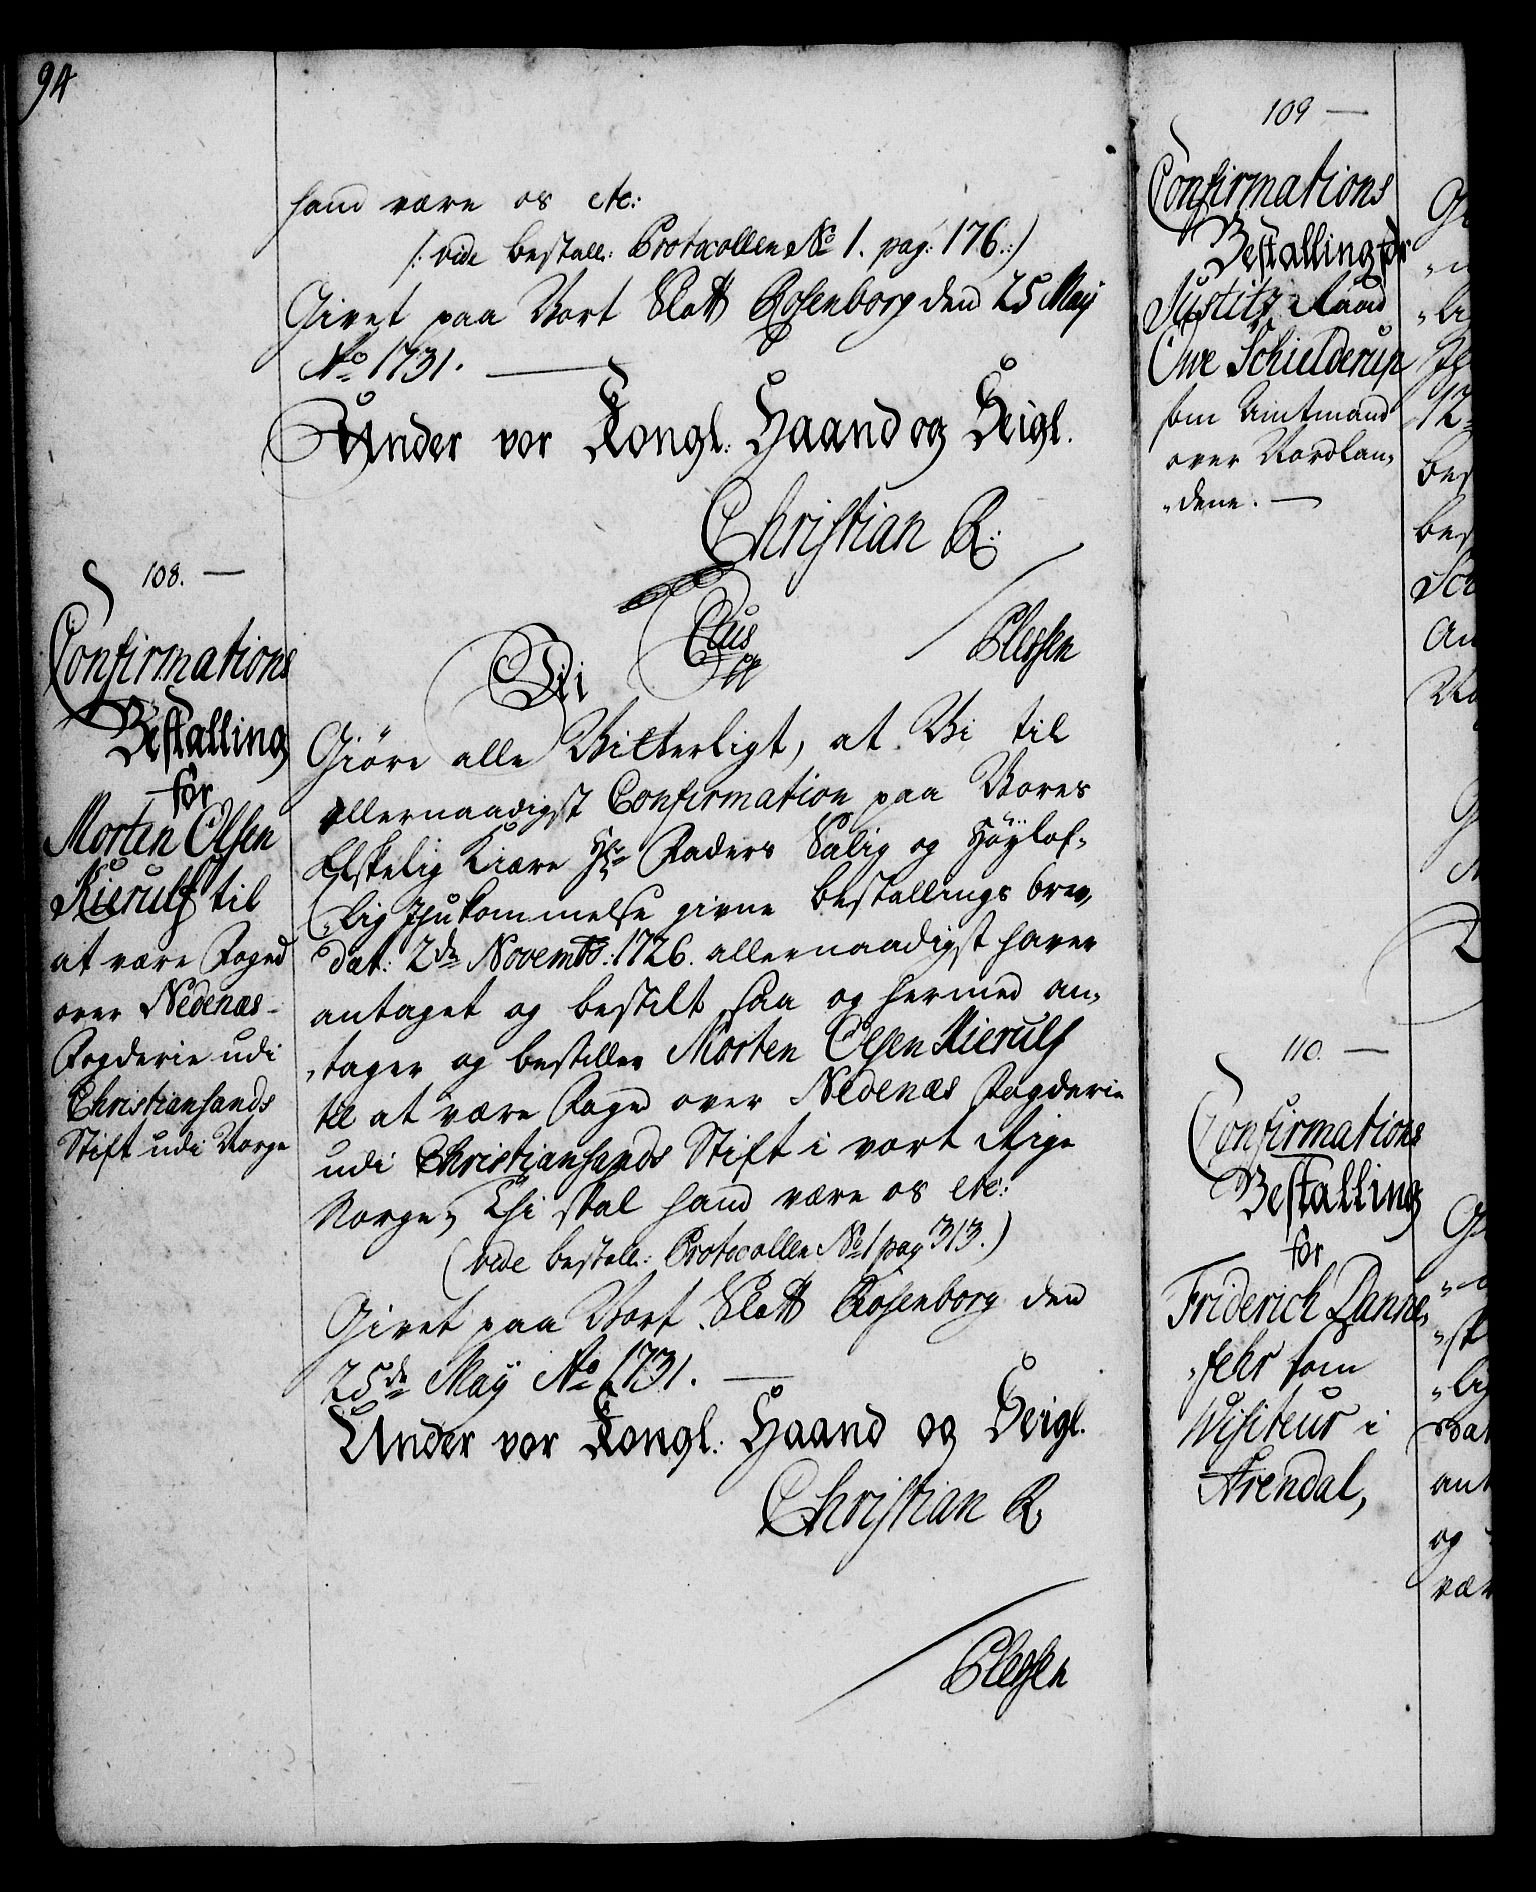 94
hand være os etc:
/: vide bestall: Protocollen No 1. pag: 176.:/
Givet paa Vort Slott Rosenborg den 25 Maij
Ao 1731.
Under vor Kongl: Haand og Seigl.
Christian R:
Plessen
108.
Confirmations
Bestalling
for
Morten Olsen
Kierulf til
at være Foged
over Nedenæs
Fogderie udi
Christiansands
Stift udi Norge
Vi
Giøre alle Vitterligt, at Vi til
allernaadigst Confirmation paa Vores
Elskelig Kiære Hr Faders Salig og Høylof-
lig Ihukommelse givne bestallings brev,
dat: 2de Novembr: 1726. allernaadigst haver
antaget og bestilt, saa og hermed an-
tager og bestiller Morten Olsen Kierulf
til at være Foged over Nedenæs Fogderie
udi Christiansands Stift i vort Rige
Norge; Thi skal hand være os etc:
(vide bestall: Protocollen No 1 pag 313.)
Givet paa Vort Slott Rosenborg den
25de Maij Ao 1731.
Under vor Kongl: Haand og Seigl.
Christian R.
Plessen
109
Confirmations
Bestalling for
Justitz Raad
Owe Schielderup
som Amtmand
over Nordlan-
dene.
110.
Confirmations
Bestalling
for
Friderich Danne-
fehr som
Visiteur i
Arendal,